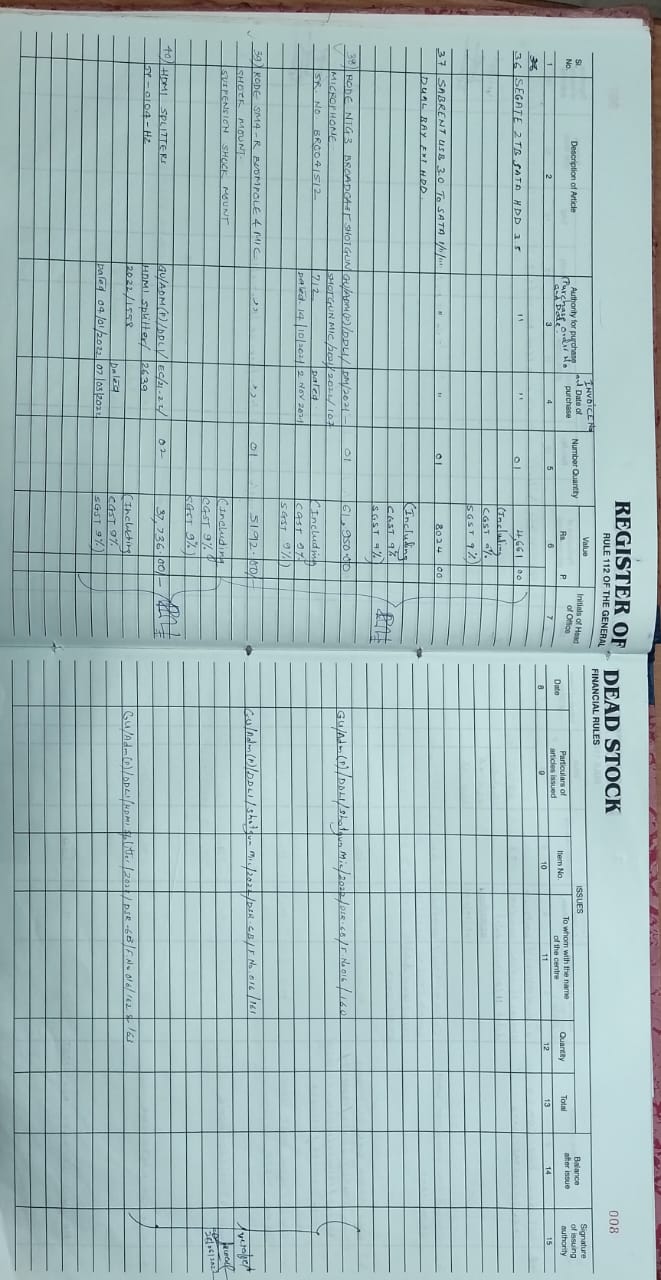 008
REGISTER OF DEAD STOCK
RULE 112 OF THE GENERAL FINANCIAL RULES
Sl. No.
Description of Article
Authority for purchase
(Purchase order No and Date.
INVOICE No
and Date of purchase
Number Quantity
Value
Rs. P
Initials of Head of Office
1 2 3 4 5 6 7
36 SEGATE 2TB SATA HDD 3.5 " " 01 4,661 00
(Including
CGST 9%
SGST 9%)
37 SABRENT USB 3.0 TO SATA " " 01 8024 00
DUAL BAY EXT HDD.
(Including
CGST 9%
SGST 9%)
38) RODE NTG3 BROADCAST SHOTGUN GU/ADM(P)/DDLI/ 01 61,950.00
MICROPHONE SHOTGUN MIC/2021/2022/107
SR. NO BR0041512 712 Dated
Dated. 14/10/2021 2 NOV 2021
(Including
CGST 9%
SGST 9%)
39) RODE SM4-R BOOMPOLE & MIC " " 01 5192.00/-
SHOCK MOUNT.
SUSPENSION SHOCK MOUNT
(Including
CGST 9%
SGST 9%)
40) HDMI SPLITTERS GU/ADM(P)/DDLI/ EC/21-22/ 02 37,736.00/-
HDMI splitter/ 2639
2022/1558
Dated
Dated 04/01/2022 07/03/2022
(Including
CGST 9%
SGST 9%)
ISSUES
Date
Particulars of articles issued
Item No.
To whom with the name of the centre
Quantity
Total
Balance after issue
Signature of issuing authority
8 9 10 11 12 13 14 15
GU/Adm(P)/DDLI/Shotgun Mic/2022/DSR-6B/F.No016/160
GU/Adm(P)/DDLI/Shotgun Mic/2022/DSR-6B/F.No 016/161
GU/Adm(P)/DDLI/HDMI Splitter/2022/DSR-6B/F.No 016/162 & 163